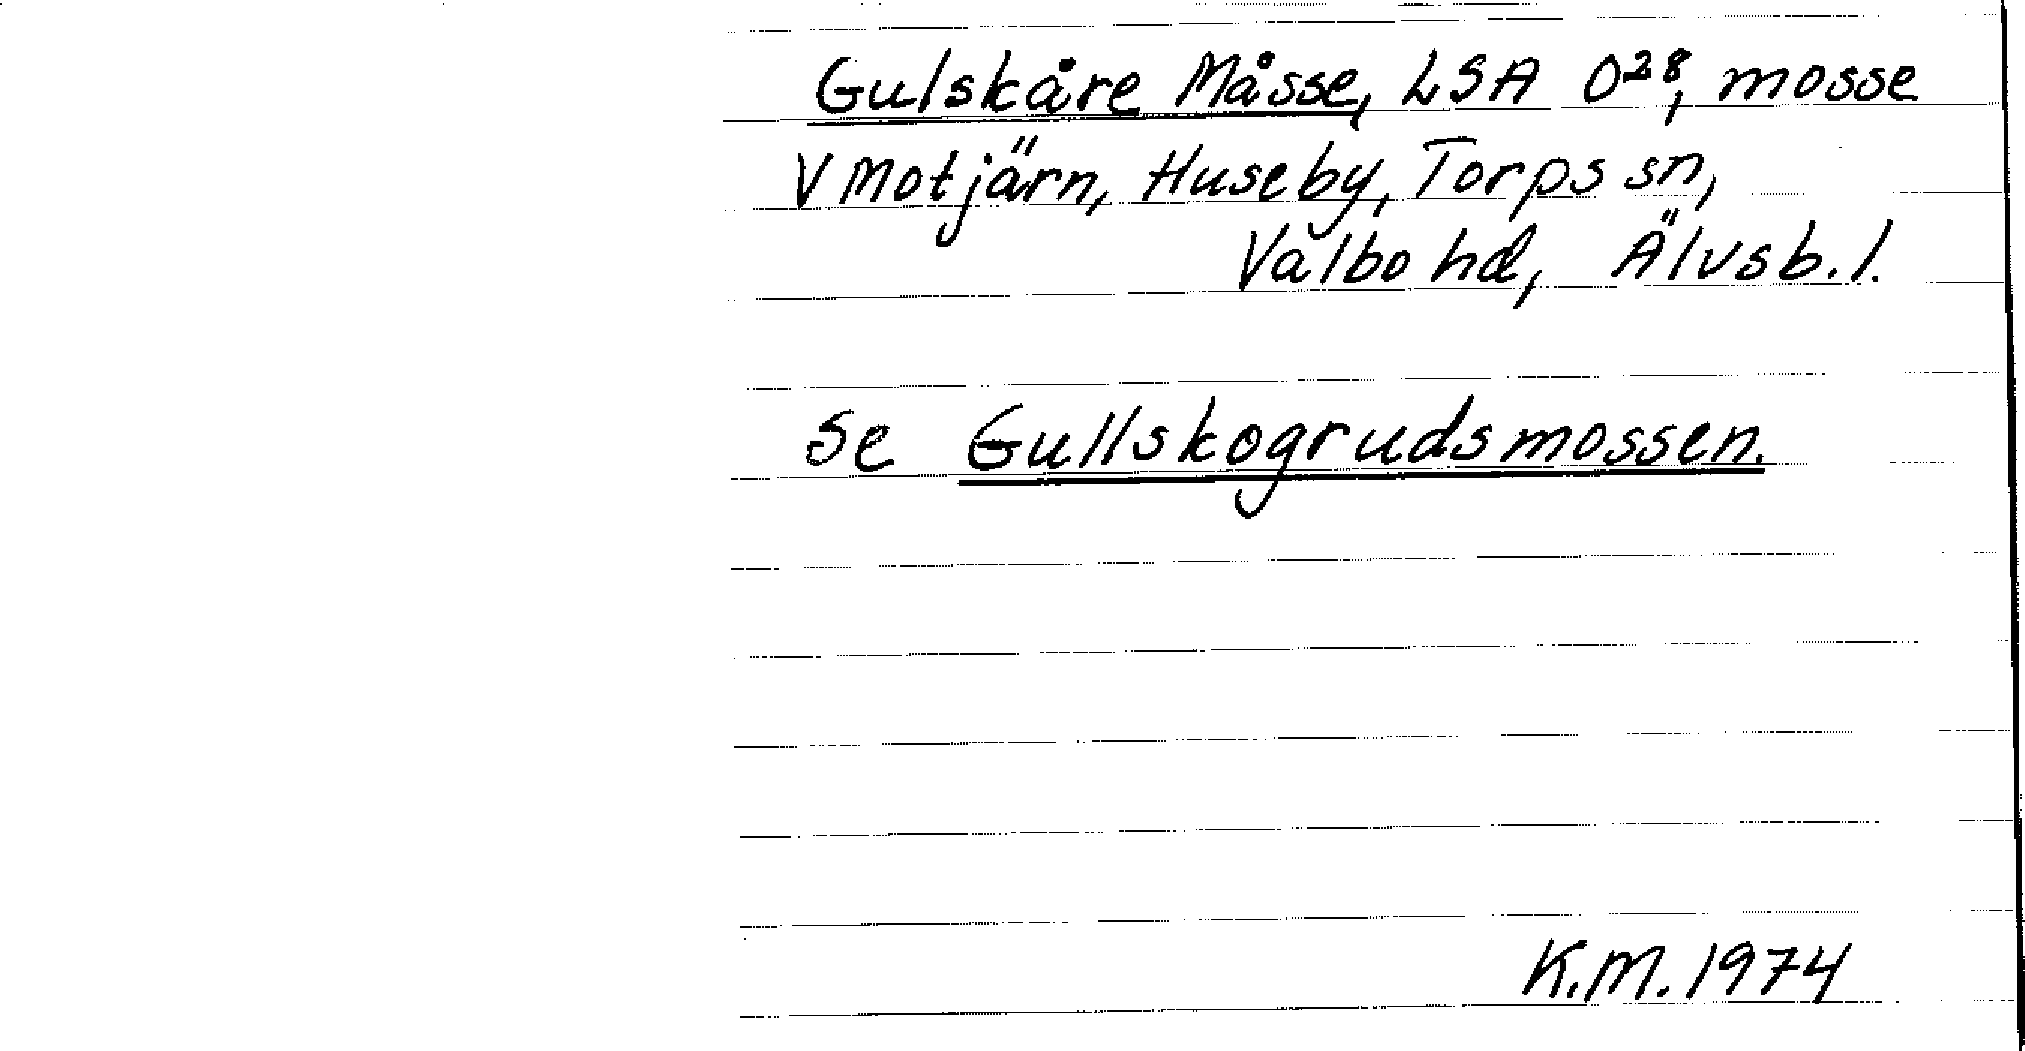 Gulskåre Måsse, LSA O28, mosse
V Motjärn, Huseby, Torps sn,
Valbo hd, Älvsb. l.
Se Gullskogrudsmossen.
K.M. 1974